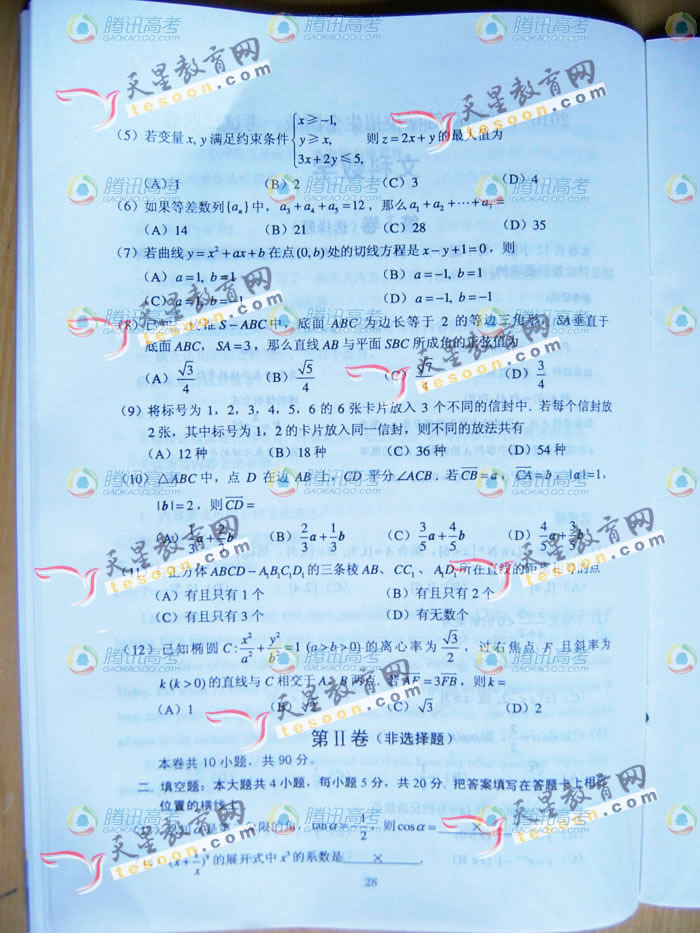 (5) 若变量 x, y 满足约束条件 { x≥-1, y≥x, 3x+2y≤5, 则 z=2x+y 的最大值为
(A) 1 (B) 2 (C) 3 (D) 4
(6) 如果等差数列{aₙ}中，a₃+a₄+a₅=12，那么 a₁+a₂+⋯+a₇=
(A) 14 (B) 21 (C) 28 (D) 35
(7) 若曲线 y=x²+ax+b 在点(0,b)处的切线方程是 x-y+1=0，则
(A) a=1, b=1 (B) a=-1, b=1
(C) a=1, b=-1 (D) a=-1, b=-1
S-ABC 中，底面 ABC 为边长等于 2 的等边三角形，SA垂直于
底面 ABC，SA=3，那么直线 AB 与平面 SBC 所成角的正弦值为
(A) √3/4 (B) √5/4 (C) √7/4 (D) 3/4
(9) 将标号为 1，2，3，4，5，6 的 6 张卡片放入 3 个不同的信封中. 若每个信封放
2 张，其中标号为 1，2 的卡片放入同一信封，则不同的放法共有
(A) 12 种 (B) 18 种 (C) 36 种 (D) 54 种
(10) △ABC 中，点 D 在边 AB 上，CD 平分∠ACB，若 CB=a，CA=b，|a|=1，
|b|=2，则 CD=
(A) 1/3a+2/3b (B) 2/3a+1/3b (C) 3/5a+4/5b (D) 4/5a+3/5b
正方体 ABCD-A₁B₁C₁D₁ 的三条棱 AB、CC₁、A₁D₁ 所在直线的距离相等的点
(A) 有且只有 1 个 (B) 有且只有 2 个
(C) 有且只有 3 个 (D) 有无数个
(12) 已知椭圆 C: x²/a²+y²/b²=1 (a>b>0) 的离心率为 √3/2，过右焦点 F 且斜率为
k (k>0) 的直线与 C 相交于 A、B 两点. 若 AF=3FB，则 k=
(A) 1 (B) √2 (C) √3 (D) 2
第Ⅱ卷（非选择题）
本卷共 10 小题，共 90 分.
二. 填空题：本大题共 4 小题，每小题 5 分，共 20 分. 把答案填写在答题卡上相应
位置的横线上.
限的角，tanα=-1/2，则 cosα=×
(x+1/x)⁹ 的展开式中 x³ 的系数是 × .
28
腾讯高考
GAOKAO.QQ.COM
天星教育网
tesoon.com